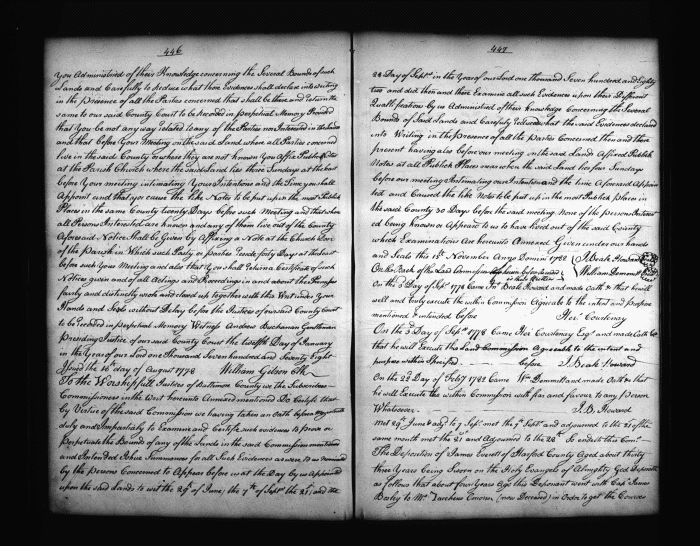 446
You Administred of their Knowledge concerning the Several Bounds of such
Lands and Carefully to produce what those Evidences shall declare into Writing
in the presence of all the Parties concerned that shall be there and return the
same to our said County Court to be Recorded in perpetual Memory Provided
that You be not any way related to any of the Parties nor Interested in the Lands
and that before Your Meeting on the said Land where all Parties concerned
live in the said County or where they are not known You Affix Publick Notes
at the Parish Church where the said Land lies three Sundays at the least
before Your meeting intimating Your Intentions and the Time you shall
Appoint and that you cause the like Notes to be put up in the most Publick
Places in the same County twenty Days before such Meeting and that where
all Persons Interested are known and any of them live out of the County
Aforesaid Notice shall be given by Affixing a Note at the Church Door
of the Parish in Which such Party or Parties reside forty Days at the least
before such Your Meeting and also that You shall return a Certificate of such
Notices given and of all Actings and Proceedings in and about the Premises
fairly and distinctly wrote and closed up together with this Writ under Your
Hands and Seals without Delay before the Justices of our said County Court
to be recorded in perpetual Memory Witness Andrew Buchanan Gentleman
Presiding Justice of our said County Court the twelfth Day of January
in the Year of our Lord One Thousand Seven hundred and Seventy Eight
Issued the 16th day of August 1778 William Gibson Clk
To the Worshipfull Justices of Baltimore County we the Subscribers
Commissioners in the Writ hereunto Annexed mentioned Do Certify that
by Virtue of the said Commission we having taken an Oath before
duly and Impartially to Examine and Certify such evidences to prove or
Perpetuate the Bounds of any of the Lands in the said Commission mentioned
and Intended Issue Summonses for all such Evidences as were to us named
by the persons Concerned to Appear before us at the Day by us Appointed
upon the said Lands to wit the 29th of June, the 7th of Septr the 21st, and the
447
28 Day of Septr in the Year of our Lord one thousand Seven hundred and Eighty
two and did then and there Examine all such Evidences upon their Different
Qualifications by us Administred of their Knowledge Concerning the Several
Bounds of Said Lands and Carefully reduced what the said Evidences declared
into Writing in the Presence of all the Parties Concerned then and there
present having also before our meeting on the said Land Affixed Publick
Notes at all Publick Places near where the said Land lies four Sundays
before our meeting Intimating our Intention and the time Aforesaid Appoin
ted and Caused the like Notes to be put up in the most Publick places in
the said County 30 Days before the said meeting. None of the persons Interest
ed being known or Appear to us to have lived out of the said County
which Examinations Are hereunto Annexed Given under our hands
and Seals this 13th November Anno Domini 1782 J. Beale Howard
On the Back of the Said Commission William Demmitt
On the 3d Day of Septr 1778 Came Jno Beale Howard and made Oath that he will
well and truly execute the within Commission Agreeable to the intent and purpose
mentioned & intended before Her: Courtenay
On the 3d Day of Septr 1778 Came Her: Courtenay Esqr and made Oath
that he will Execute the Said Commission Agreeable to the intent and
purpose within Specified before J. Beale Howard
On the 23d Day of Feby 1782 Came Wm Demmitt and made Oath that
he will Execute this within Commission with fair and favour to any Person
Whatsoever J. B. Howard
Met 29th June & adjd to 7 Sepr met the 7th Septr and adjourned to the 21st of the
same month met the 21st and Adjourned to the 28th to Conduct this Comn
The Deposition of James Everett of Harford County Aged about thirty
three Years being Sworn on the Holy Evangels of Almighty God Deposeth
as follows that about four Years Ago this Deponant went with Capt James
Bosley to Mr Zacheus Onion (now Deceased) in Order to get the Courses